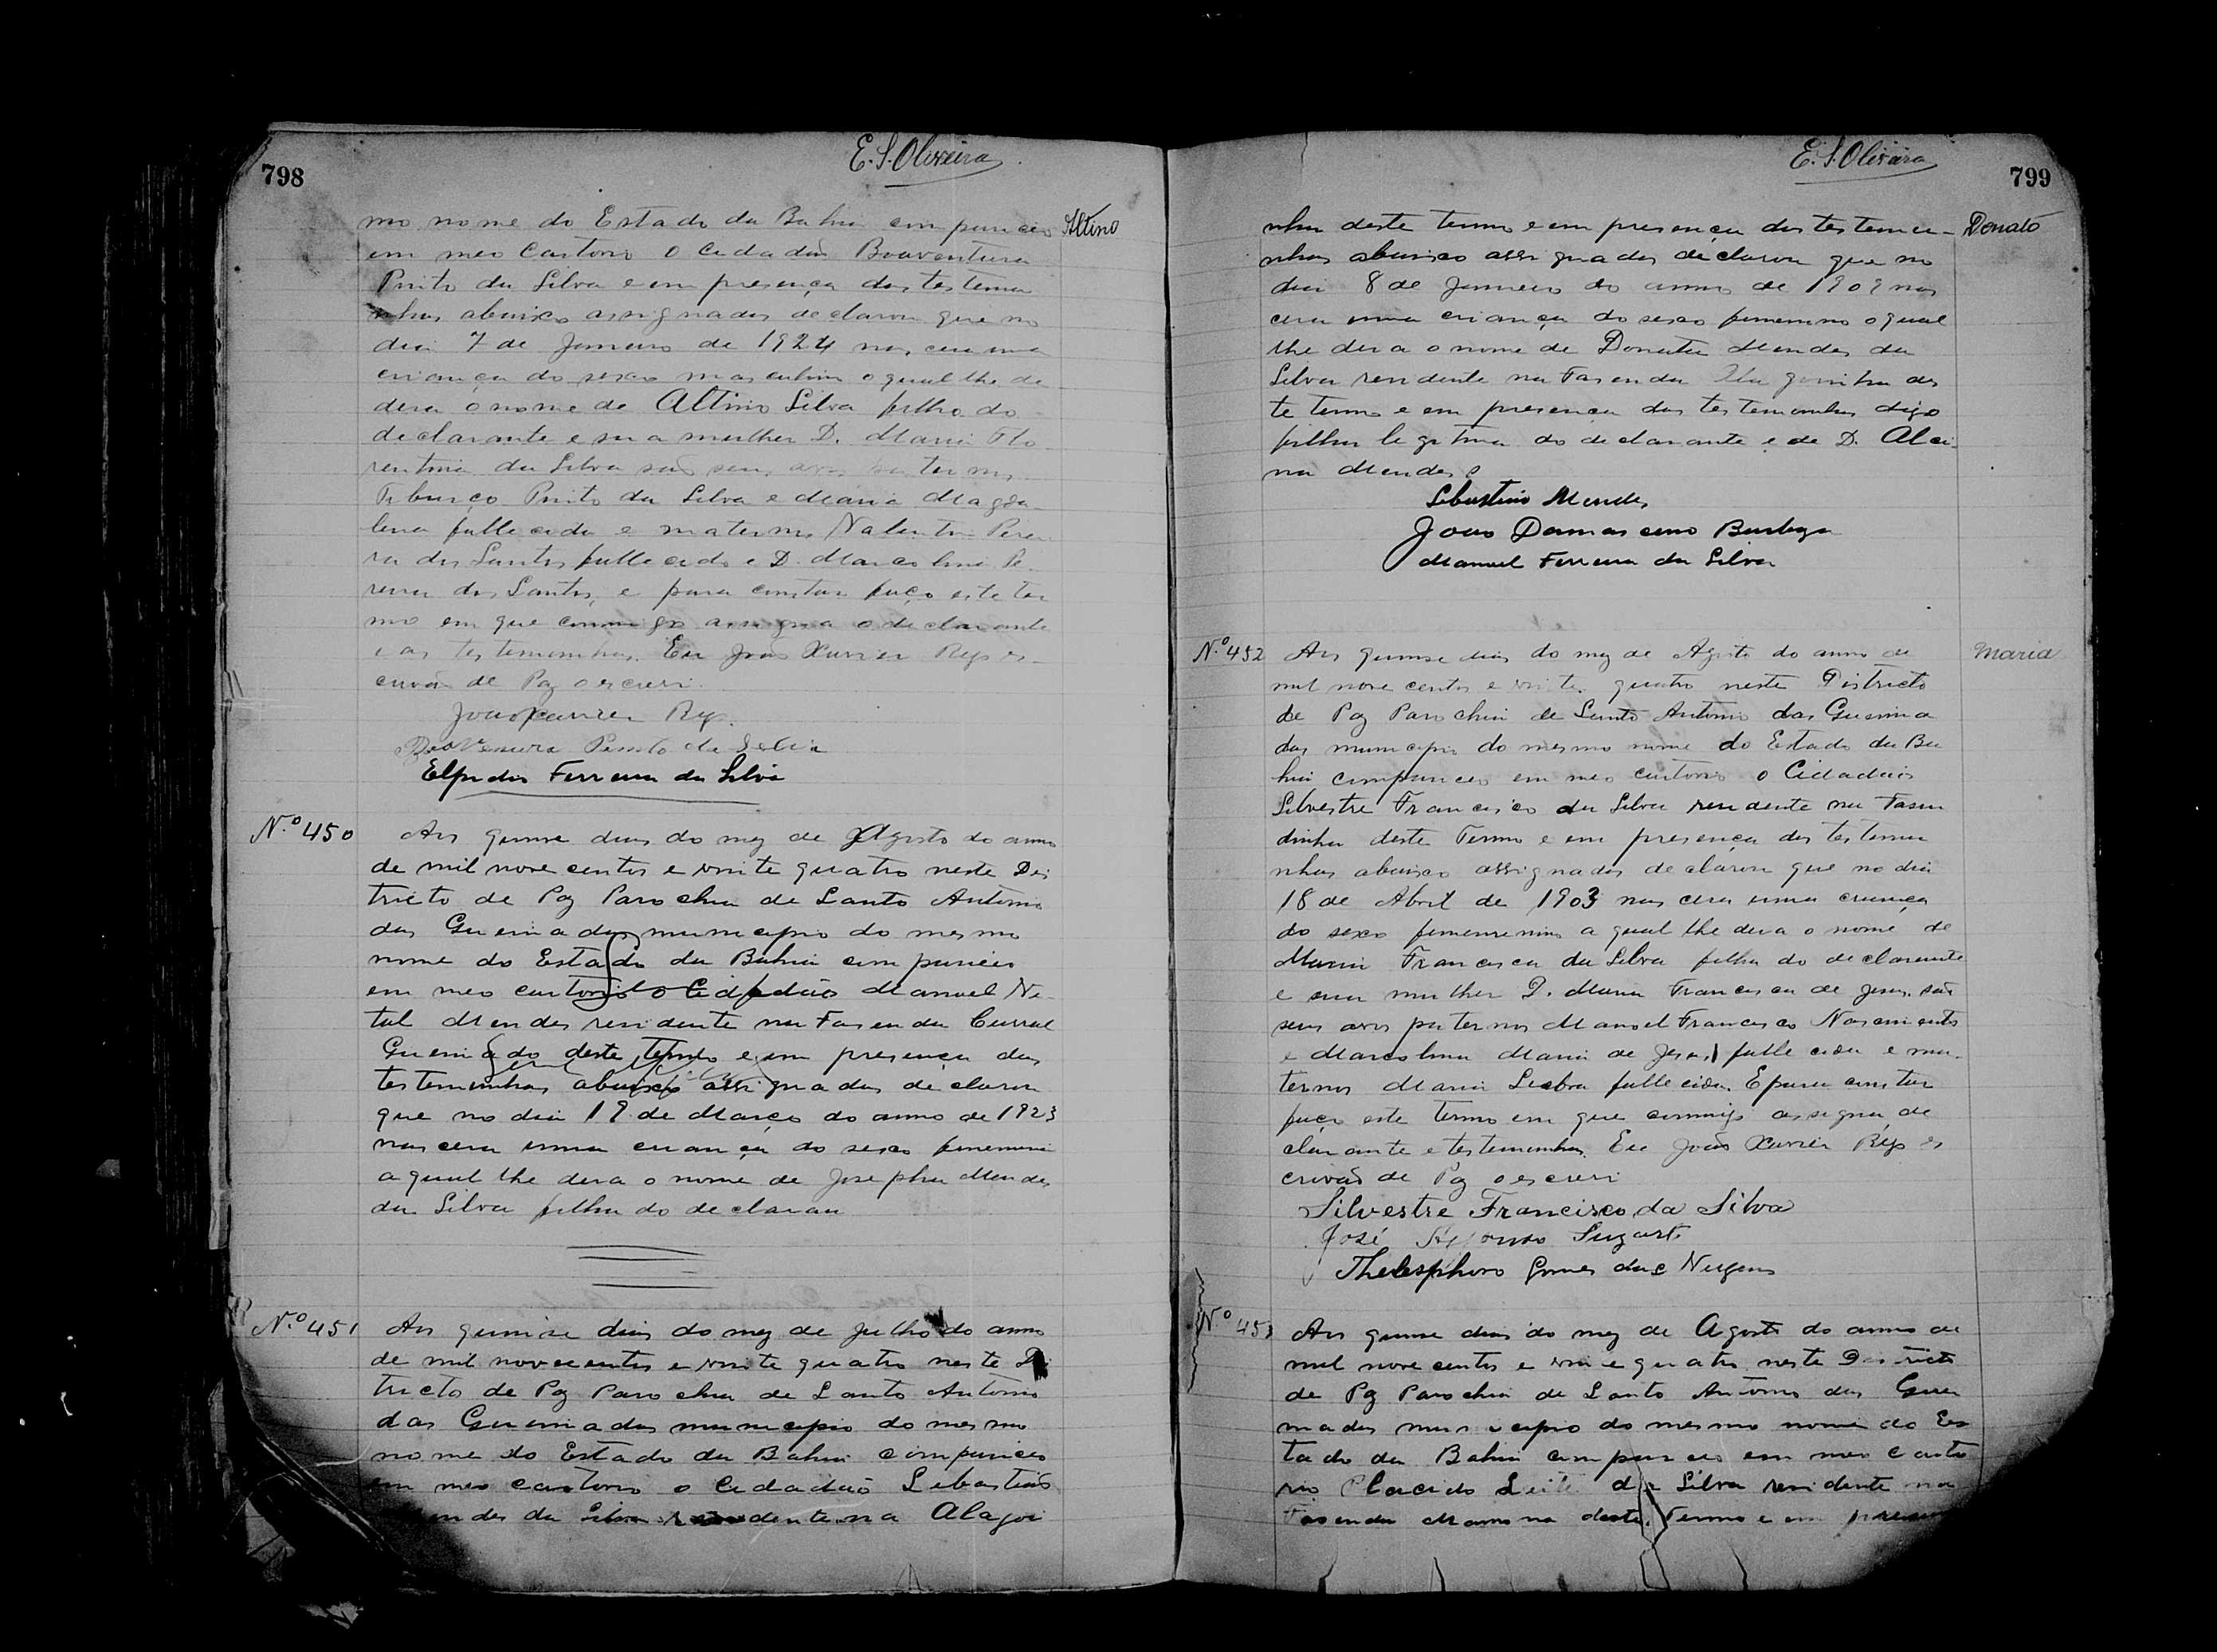 798
E. S. Oliveira
mo nome do Estado da Bahia compareceo
Altino
em meo Cartorio o Cidadão Boaventura
Pinto da Silva e em presença das testemu
nhas abaixo assignadas declarou que no
dia 7 de Janeiro de 1924 nascera uma
criança do sexo masculino o qual lhe de
dera o nome de Altino Silva filho do
declarante e sua mulher D. Maria Flo
rentina da Silva são seus avos paternos
Tiburço Pinto da Silva e Maria Magda
lena fallecida e maternos Valentim Perei
ra dos Santos fallecido e D. Marcolina Pe
reira dos Santos, e para constar faço este ter
mo em que commigo assigna o declarante
e as testemunhas. Eu João Xavier Reys es
crivão de Paz o escrevi.
João Xavier Reys.
Boaventura Pinto da Silva
Elpidio Ferreira da Silva
N.º 450
Aos quinse dias do mez de Agosto do anno
de mil nove centos e vinte quatro neste Dis
tricto de Paz Parochia de Santo Antonio
das Queimadas municipio do mesmo
nome do Estado da Bahia compareceo
em meo cartorio o Cidadão Manoel Na
tal Mendes residente na Fasenda Curral
Queimado deste Termo e em presença das
testemunhas abaixo assignadas declarou
que no dia 19 de Março do anno de 1923
nascera uma criança do sexo femenino
a qual lhe dera o nome de Josepha Mendes
da Silva filha do declaran
N.º 451
Aos quinse dias do mez de Julho do anno
de mil novecentos e vinte quatro neste Dis
tricto de Paz Parochia de Santo Antonio
das Queimadas municipio do mesmo
nome do Estado da Bahia compareceo
em meo cartorio o Cidadão Sebastião
Mendes da Silva residente na Alagoi
799
E. S. Oliveira
nha deste termo e em presença das testemu-
Donato
nhas abaixo assignadas declarou que no
dia 8 de Janeiro do anno de 1909 nas
cera uma criança do sexo femenino o qual
lhe dera o nome de Donata Mendes da
Silva residente na Fasenda Alagoinha des
te termo e em presença das testemunhas digo
filha legitima do declarante e de D. Alci-
na Mendes
Sebastião Mendes
João Damasceno Barboza
Manuel Ferreira da Silva
N.º 452
Aos quinse dias do mez de Agosto do anno de
Maria
mil nove centos e vinte quatro neste Districto
de Paz Parochia de Santo Antonio das Queima
das municipio do mesmo nome do Estado da Ba
hia compareceo em meo cartorio o Cidadão
Silvestre Francisco da Silva residente na Fasen
dinha deste Termo e em presença das testemu
nhas abaixo assignadas declarou que no dia
18 de Abril de 1903 nascera uma criança
do sexo femenenino a qual lhe dera o nome de
Maria Francisca da Silva filha do declarante
e sua mulher D. Maria Francisca de Jesus. são
seus avos paternos Manoel Francisco Nascimento
e Marcolina Maria de Jesus fallecida e ma-
ternos Maria Lisboa fallecida. E para constar
faço este termo em que commigo assigna de
clarante e testemunhas. Eu João Xavier Reys es
crivão de Paz o escrevi
Silvestre Francisco da Silva
José Affonso Sugart
Thelesphoro Gomes das
N.º 453
Aos quinse dias do mez de Agosto do anno de
mil nove centos e vin e quatro neste Districto
de Paz Parochia de Santo Antonio das Quei
madas municipio do mesmo nome do Es
tado da Bahia compareceo em meo carto
rio Placido Leite da Silva residente na
Fasenda Mamona deste Termo e em presen